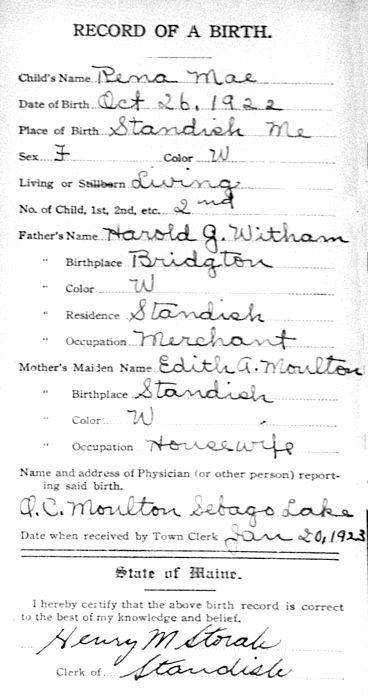 RECORD OF A BIRTH.
Child's Name Rena Mae
Date of Birth Oct 26, 1922
Place of Birth Standish Me
Sex F Color W
Living or Stillborn Living
No. of Child, 1st, 2nd, etc. 2nd
Father's Name Harold G. Witham
" Birthplace Bridgton
" Color W
" Residence Standish
" Occupation Merchant
Mother's Maiden Name Edith A. Moulton
" Birthplace Standish
" Color W
" Occupation Housewife
Name and address of Physician (or other person) report-
ing said birth.
O. C. Moulton Sebago Lake
Date when received by Town Clerk Jan 20, 1923
State of Maine.
I hereby certify that the above birth record is correct
to the best of my knowledge and belief.
Henry M Storah
Clerk of Standish